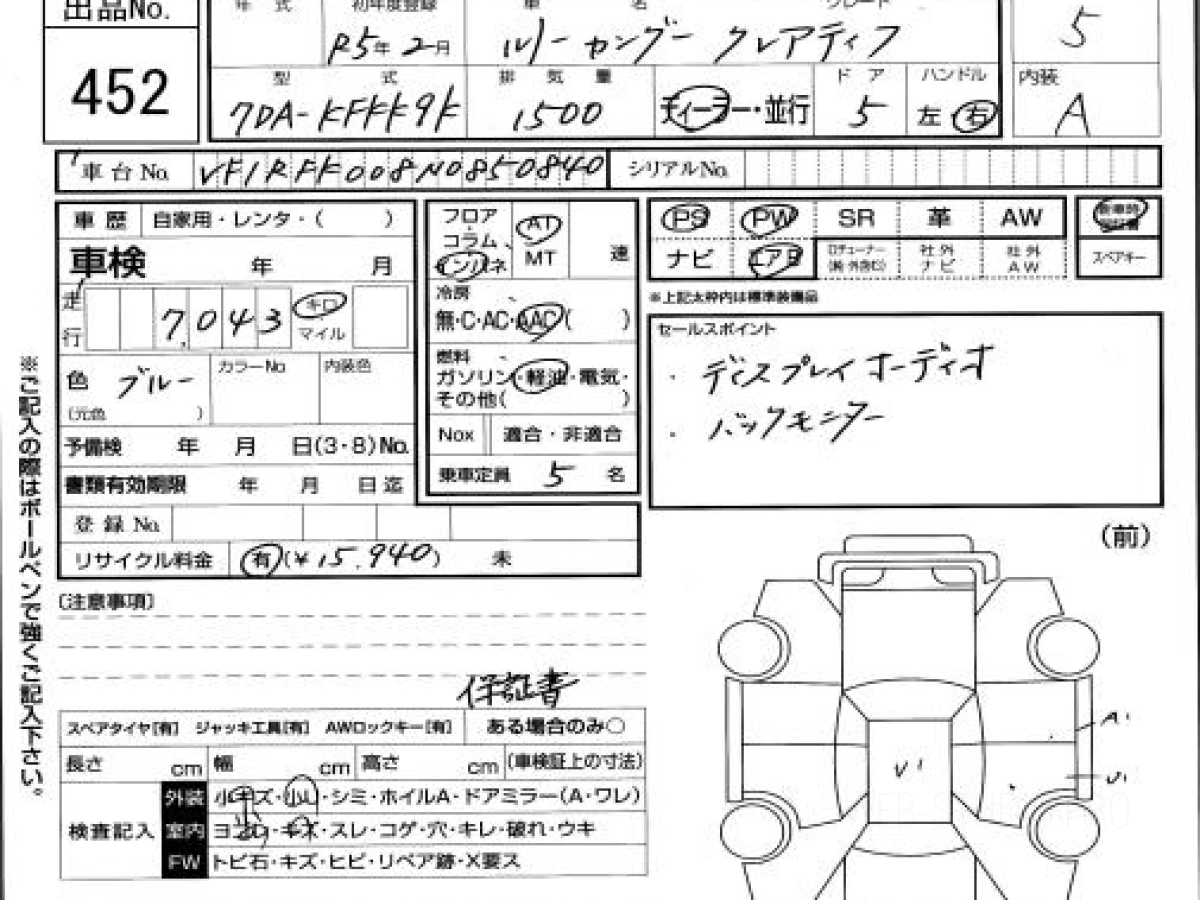 出品No.
452
年 式 初年度登録 車 名 グレード
R5年 2月 ルノー カングー クレアティフ 5
型 式 排 気 量 ドア ハンドル 内装
7DA-KFKK9K 1500 ディーラー・並行 5 左 右 A
車台No. VF1RFK008N0850840 シリアルNo.
車 歴 自家用・レンタ・( )
車検 年 月
走行 7,043 キロ マイル
色 ブルー カラーNo 内装色
(元色 )
予備検 年 月 日(3・8)No.
書類有効期限 年 月 日迄
登 録 No.
リサイクル料金 有(¥15,940) 未
フロア・コラム インパネ AT MT 速
冷房
無・C・AC・AAC( )
燃料
ガソリン・軽油・電気・
その他( )
Nox 適合・非適合
乗車定員 5 名
PS PW SR 革 AW
ナビ エアB 社外ナビ 社外AW スペアキー
※上記太枠内は標準装備品
セールスポイント
・ディスプレイオーディオ
・バックモニター
※ご記入の際はボールペンで強くご記入下さい。
(前)
〔注意事項〕
保証書
スペアタイヤ[有] ジャッキ工具[有] AWロックキー[有] ある場合のみ〇
長さ cm 幅 cm 高さ cm (車検証上の寸法)
検査記入
外装 小キズ・小凹・シミ・ホイルA・ドアミラー(A・ワレ)
室内 ヨゴレ・キズ・スレ・コゲ・穴・キレ・破れ・ウキ
FW トビ石・キズ・ヒビ・リペア跡・X要ス
A1
V1
U1